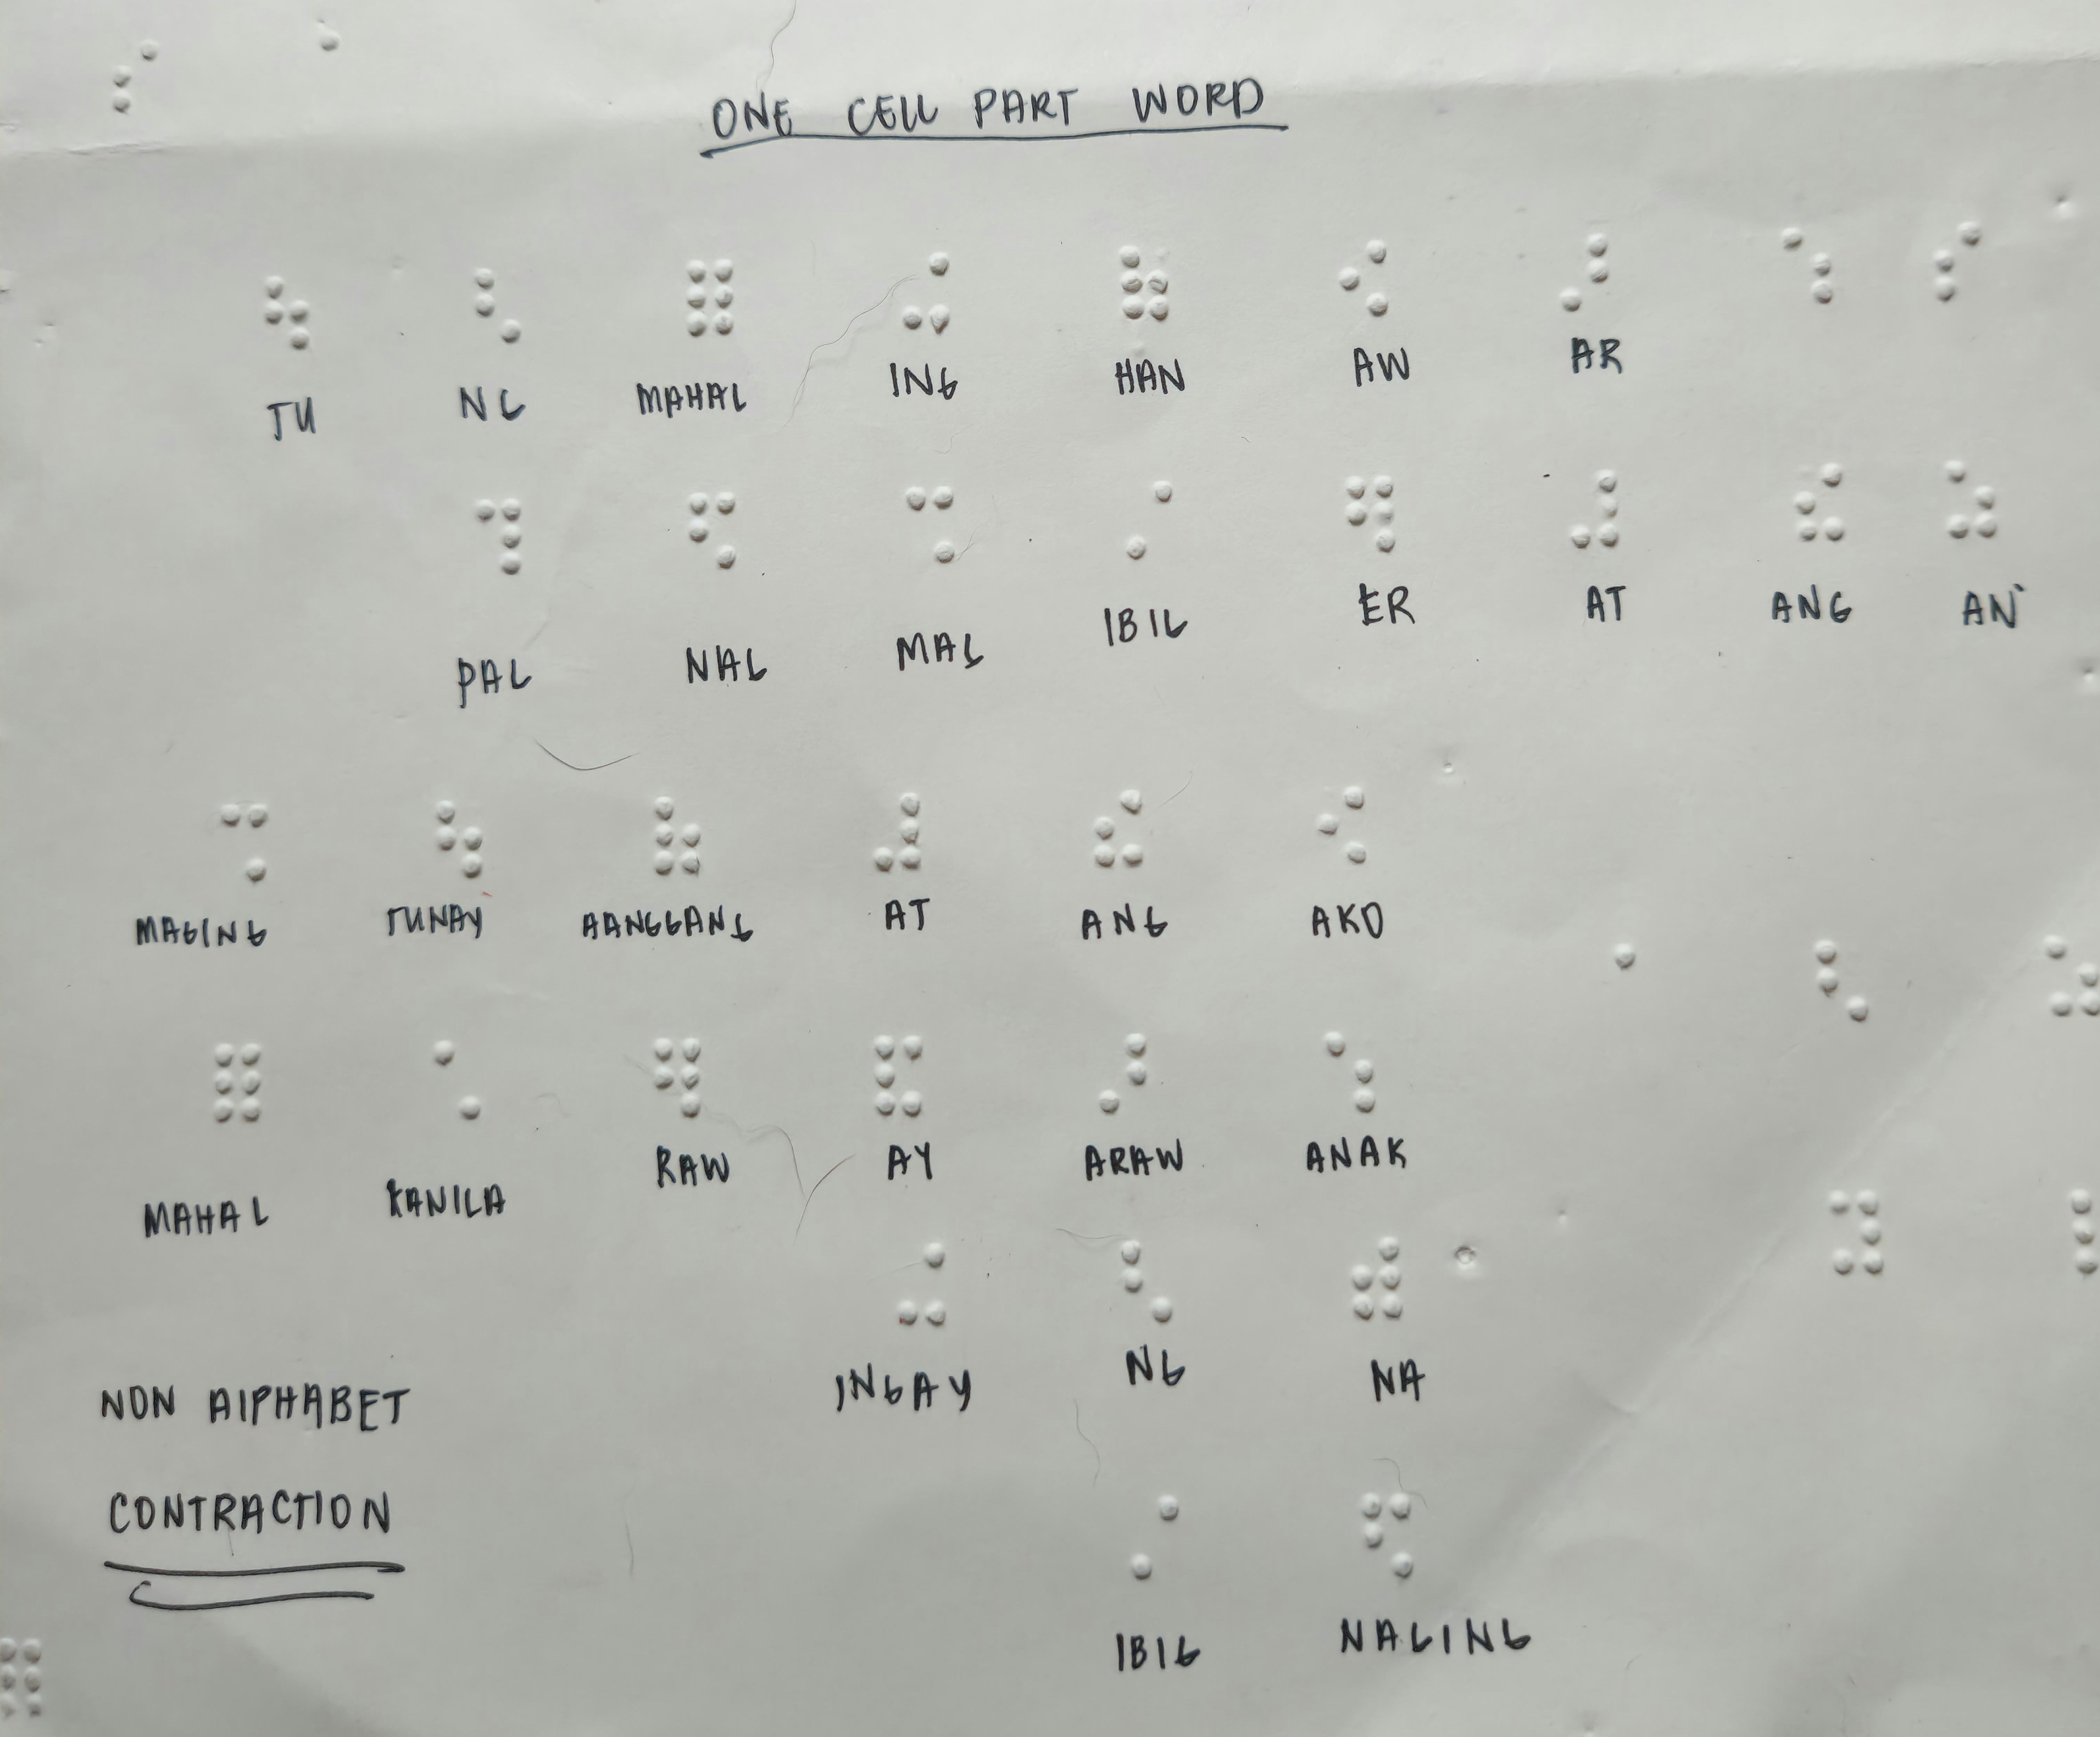 ONE CELL PART WORD
TU NG MAHAL ING HAN AW AR
PAG NAG MAG IBIG ER AT ANG AN
MAGING TUNAY AANGGANG AT ANG AKO
MAHAL KANILA RAW AY ARAW ANAK
INGAY NG NA
NON AlPHABET
CONTRACTION
IBIG NAGING